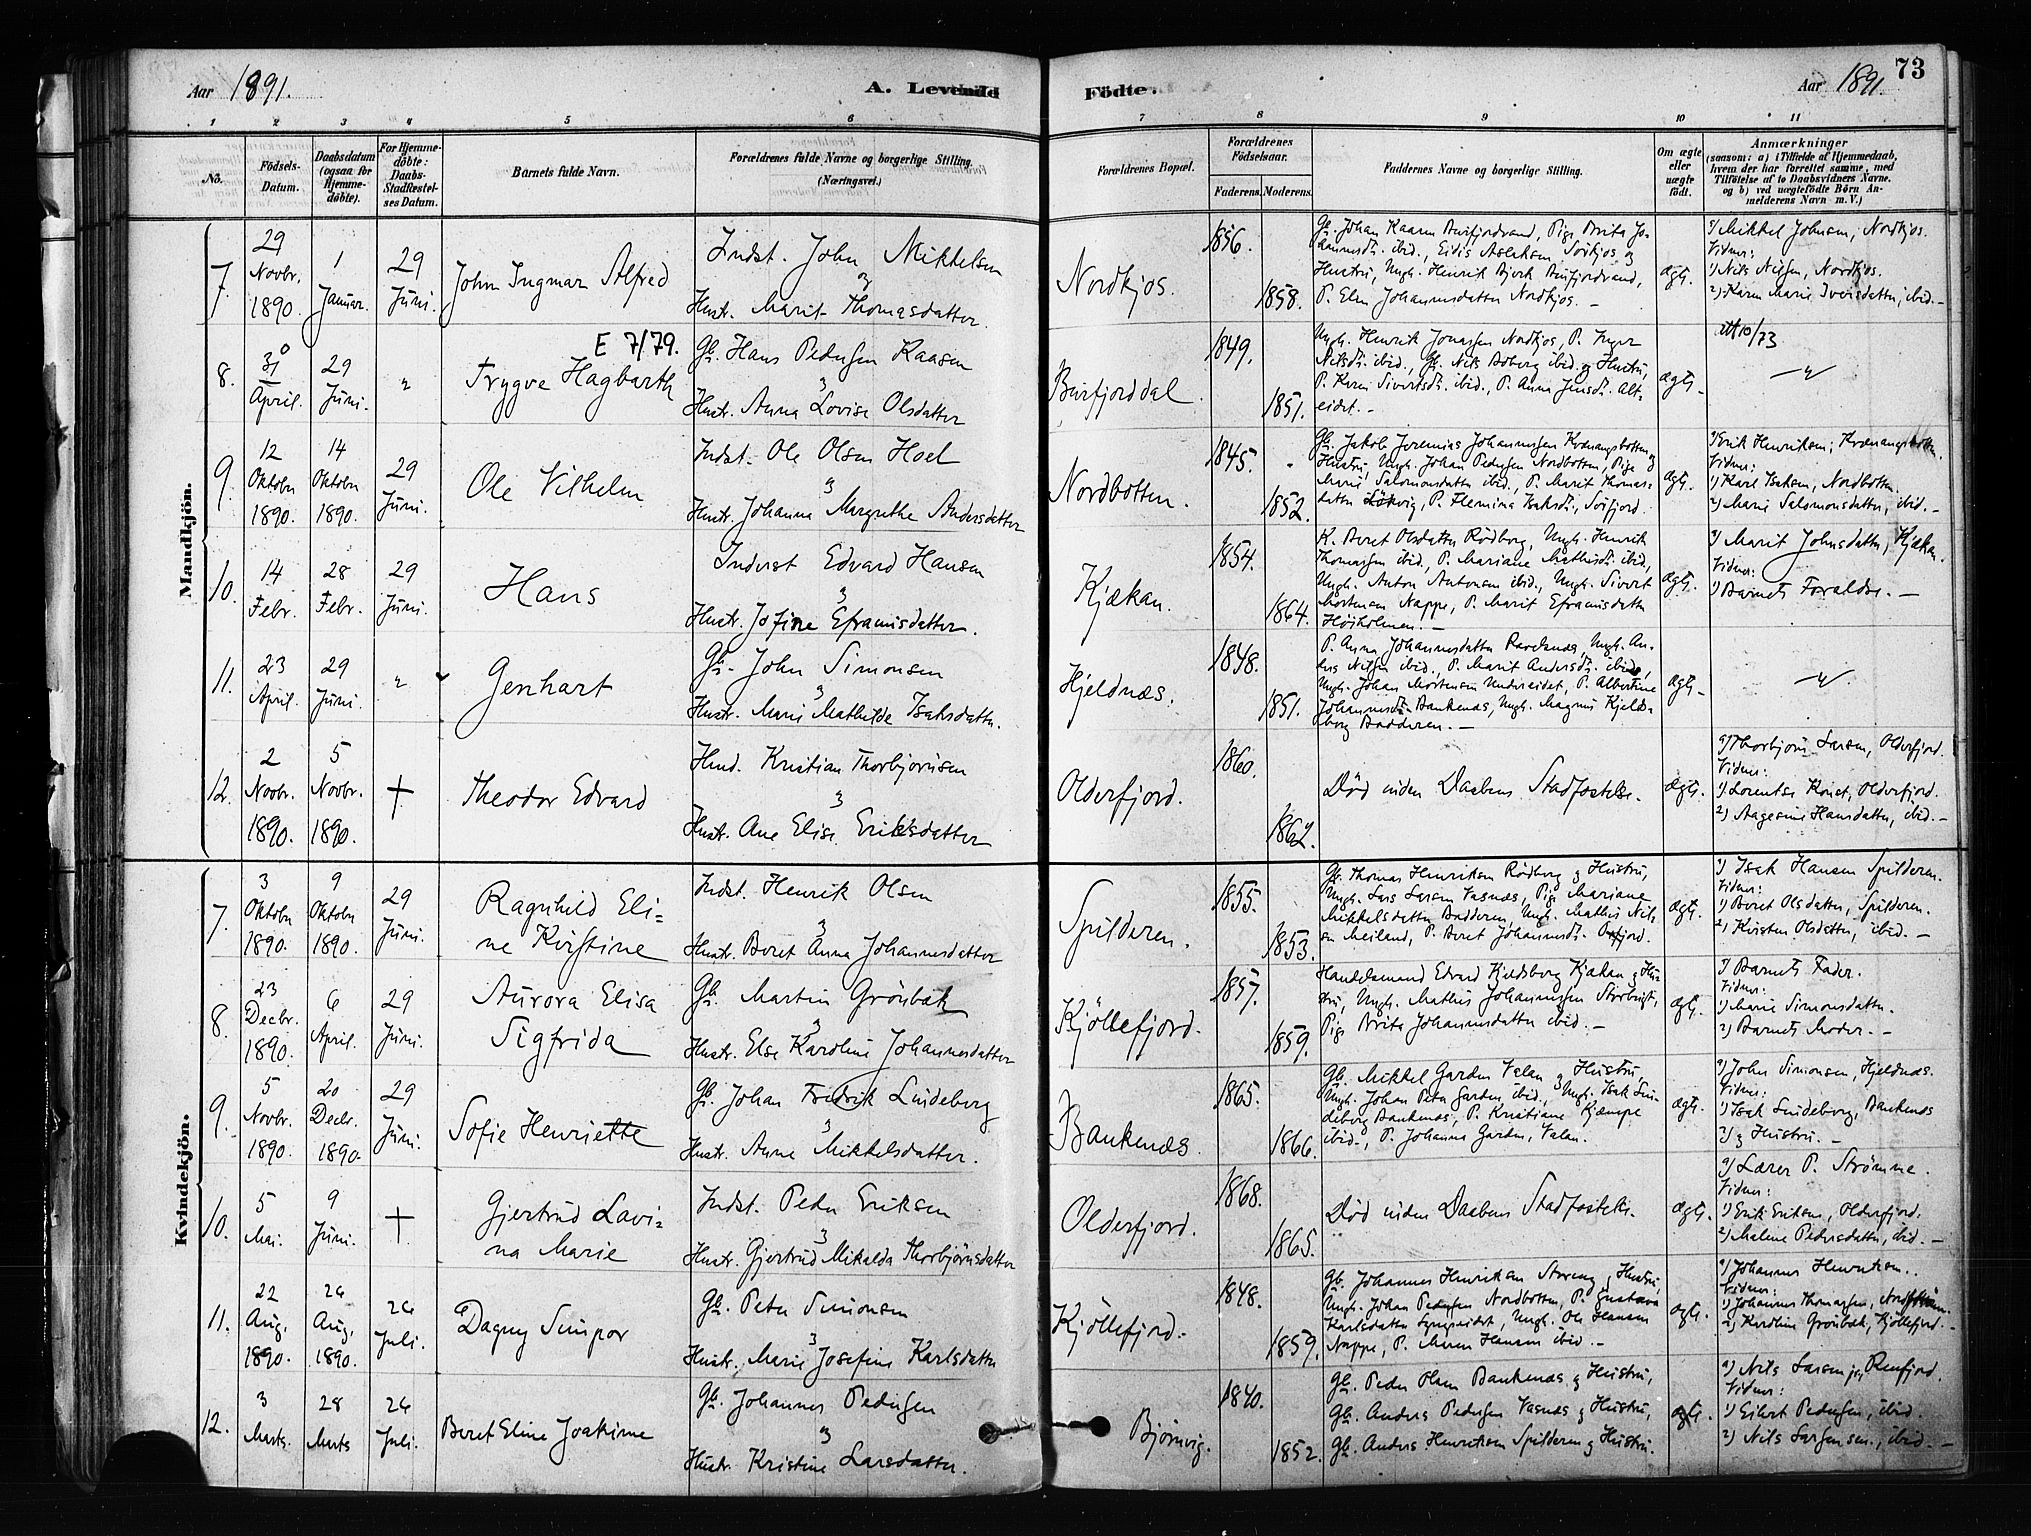 Aar 1891. A. Levende
Fødte. Aar 1891. 73
1 2 3 4 5 6 7 8 9 10 11
No. Fødsels-Datum. Daabsdatum (ogsaa for Hjemmedøbte). For Hjemmedøbte: Daabs-Stadfæstelses Datum. Barnets fulde Navn. Forældrenes fulde Navne og borgerlige Stilling. (Næringsvei.)
Forældrenes Bopæl. Forældrenes Fødselsaar. Faderens. Moderens. Faddernes Navne og borgerlige Stilling. Om ægte eller uægte født. Anmærkninger (saasom: a) i Tilfælde af Hjemmedaab, hvem der har forrettet samme, med Tilføielse af to Daabsvidners Navne, og b) ved uægtefødte Børn Anmelderens Navn m. V.)
Mandkjön.
7. 29 Novbr. 1890. 1 Januar. 29 Juni. John Ingmar Alfred
Indst. John Mikkelsen
og
Hustr. Marit Thomasdatter.
Nordkjos. 1856. 1858.
P. Elen Johannesdatter Nordkjos. –
ægte.
a) Mikkel Johnsen, Nordkjos.
Vidner:
1) Nils Nilsen, Nordkjos.
2) Karen Marie Iversdatter, ibid. –
8. 31 April. 29 Juni. " E 7/79. Trygve Hagbarth
Gb. Hans Pedersen Kaasen
og
Hustr. Anna Lovise Olsdatter
Burfjorddal. 1849. 1851.
Ungk. Henrik Jonassen Nordkjos, P. Inger
Nilsdtr. ibid., Gb. Nils Boberg ibid. og Hustru,
P. Karen Sivertsdtr. ibid., P. Anna Jensdtr. Alt-
eidet. –
ægte.
10/73
9. 12 Oktober 1890. 14 Oktober 1890. 29 Juni. Ole Vilhelm
Indst. Ole Olsen Hoel
og
Hustr. Johanna Margrethe Andersdatter
Nordbotten. 1845. 1852.
Gb. Jakob Jeremias Johannessen Kvænangsbotten og
Hustru, Ungk. Johan Pedersen Nordbotten, Pige
Marie Salomonsdatter ibid., P. Marit Thomas-
datter P. Flemina Isaksdtr., Sörfjord.
ægte.
a) Erik Henriksen, Kvænangsbotten.
Vidner:
1) Karl Isaksen, Nordbotten.
2) Marie Salomonsdatter, ibid. –
10. 14 Febr. 28 Febr. 29 Juni. Hans
Inderst Edvard Hansen
og
Hustr. Josine Efraimsdatter.
Kjækan. 1854. 1864.
K. Beret Olsdatter Rödberg, Ungk. Henrik
Thomassen ibid., P. Mariane Mathisdtr. ibid.,
Ungk. Anton Antonsen ibid., Ungk. Sivert
Mortensen Nappe, P. Marit Efraimsdatter
Höiholmen. –
ægte.
a) Marit Johnsdatter, Kjækan.
Vidner:
1) Barnets Forældre. –
11. 23 April. 29 Juni. " Genhart
Gb. John Simonsen
og
Hustr. Marie Mathilde Isaksdatter.
Hjeldnæs. 1848. 1851.
P. Anna Johannesdatter Ungk. An-
ders Nilsen ibid., P. Marit Andersdtr. ibid.,
Ungk. Johan Mortensen Undereidet, P. Albertine
Johannesdtr. Bankenæs, Ungk. Magnus Kjelds-
berg Badderen. –
ægte.
12. 2 Novbr. 1890. 5 Novbr. 1890. + Theodor Edvard
Kristian Thorbjörnsen
og
Hustr. Ane Elise Eriksdatter
Olderfjord. 1860. 1862.
Död inden Daabens Stadfæstelse.
ægte.
a) Thorbjörn Larsen, Olderfjord.
Vidner:
1) Olderfjord.
2) Hansdatter, ibid. –
Kvindekjön.
7. 3 Oktober 1890. 9 Oktober 1890. 29 Juni. Ragnhild Eli-
ne Kirstine
Indst. Henrik Olsen
og
Hustr. Beret Anna Johannesdatter
Spilderen. 1855. 1853.
Gb. Thomas Henriksen Rödberg og Hustru,
Ungk. Lars Larsen Vasnæs, Pige Mariane
Mikkelsdatter Badderen, Ungk. Mathis Nil-
sen Meiland, P. Beret Johannesdtr.
ægte.
a) Isak Hansen Spilderen.
Vidner:
1) Beret Olsdatter, Spilderen.
2) Kristen Olsdatter, ibid. –
8. 23 Decbr. 1890. 6 April. 29 Juni. Aurora Elisa
Sigfrida
Gb. Martin Grönbæk
og
Hustr. Else Karoline Johannesdatter
Kjöllefjord. 1857. 1859.
Handelsmand Edvard Kjeldsberg Kjækan og Hu-
stru, Ungk. Mathis Johannessen
Pige Brita Johannesdatter ibid. –
ægte.
a) Barnets Fader.
Vidner:
1) Marie Simonsdatter.
2) Barnets Moder. –
9. 5 Novbr. 1890. 20 Decbr. 1890. 29 Juni. Sofie Henriette
Gb. Johan Fredrik Lindeberg
og
Hustr. Anne Mikkelsdatter.
Bankenæs. 1865. 1866.
Gb. Mikkel Garden Valan og Hustru
Ungk. Johan Peter Garden ibid., Ungk. Isak Lin-
deberg Bankenæs, P. Kristiane Kjæmpe
ibid., P. Johanna Garden, Valan.
ægte.
a) John Simonsen, Hjeldnæs.
Vidner:
1) Isak Lindeberg, Bankenæs
2) og Hustru. –
10. 5 Mai. 9 Juni. + Gjertrud Lavi-
na Marie
Indst. Peder Eriksen
og
Hustr. Gjertrud Mikalda Thorbjörnsdatter
Olderfjord. 1868. 1865.
Död inden Daabens Stadfæstelse.
ægte.
a) Lærer P. Strömme.
Vidner:
1) Erik Eriksen, Olderfjord.
2) Malene Pedersdatter, ibid. –
11. 22 Aug. 1890. 26 Aug. 1890. 26 Juli. Dagny Simpor
Gb. Peter Simonsen
og
Hustr. Marie Josefine Karlsdatter
Kjöllefjord. 1848. 1859.
Gb. Johannes Henriksen Storeng og Hustru,
Ungk. Johan Pedersen Nordbotten, P. Gustava
Karlsdatter Lyngseidet, Ungk. Ole Hansen
Nappe, P. Maren Hansen ibid. –
ægte.
a) Johannes Henriksen.
Vidner:
1) Johannes Thomassen,
2) Karoline Grönbæk, Kjöllefjord. –
12. 3 Marts. 28 Marts 26 Juli. Beret Eline Joakime
Gb. Johannes Pedersen
og
Hustr. Kristine Larsdatter.
Björnvig. 1840. 1852.
Gb. Peder Olsen Bankenæs og Hustru,
Gb. Anders Pedersen Vasnæs og Hustru,
Gb. Anders Henriksen Spilderen og Hustru.
ægte.
a) Nils Larsen
Vidner:
1) Eilert Pedersen, ibid.
2) Nils Larsen sen., ibid. –